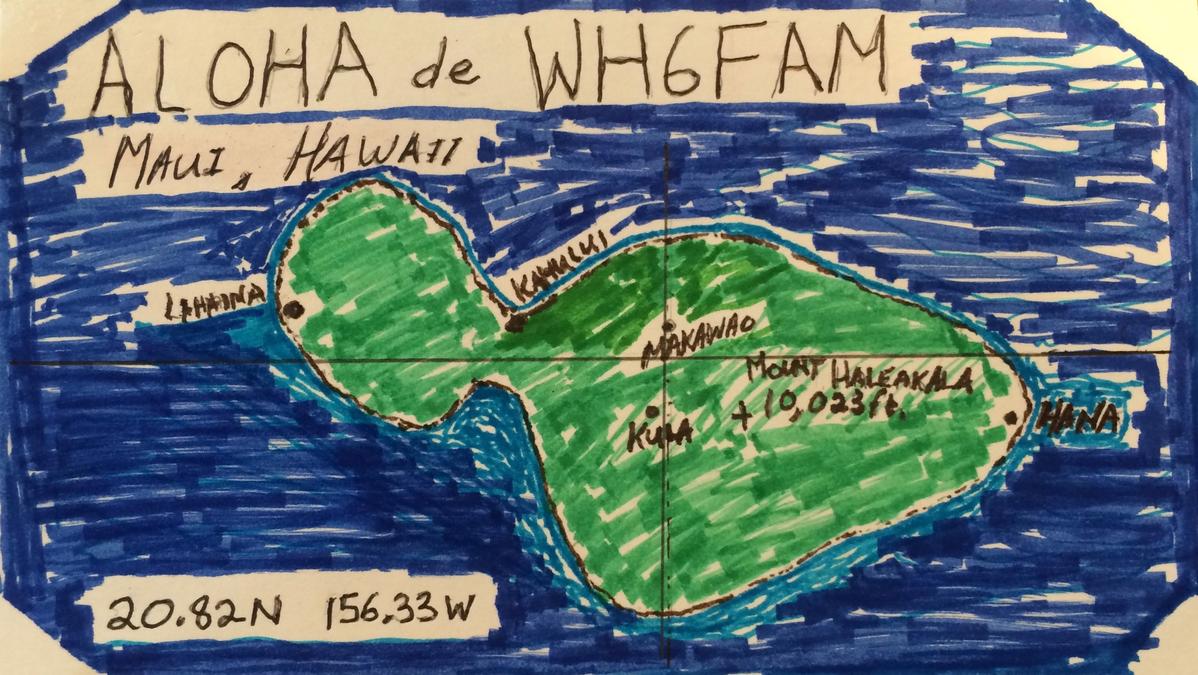 ALOHA de WH6FAM
MAUI, HAWAII
KAHULUI
LAHAINA
MAKAWAO
MOUNT HALEAKALA
+ 10,023 ft.
KULA
HANA
20.82N 156.33W